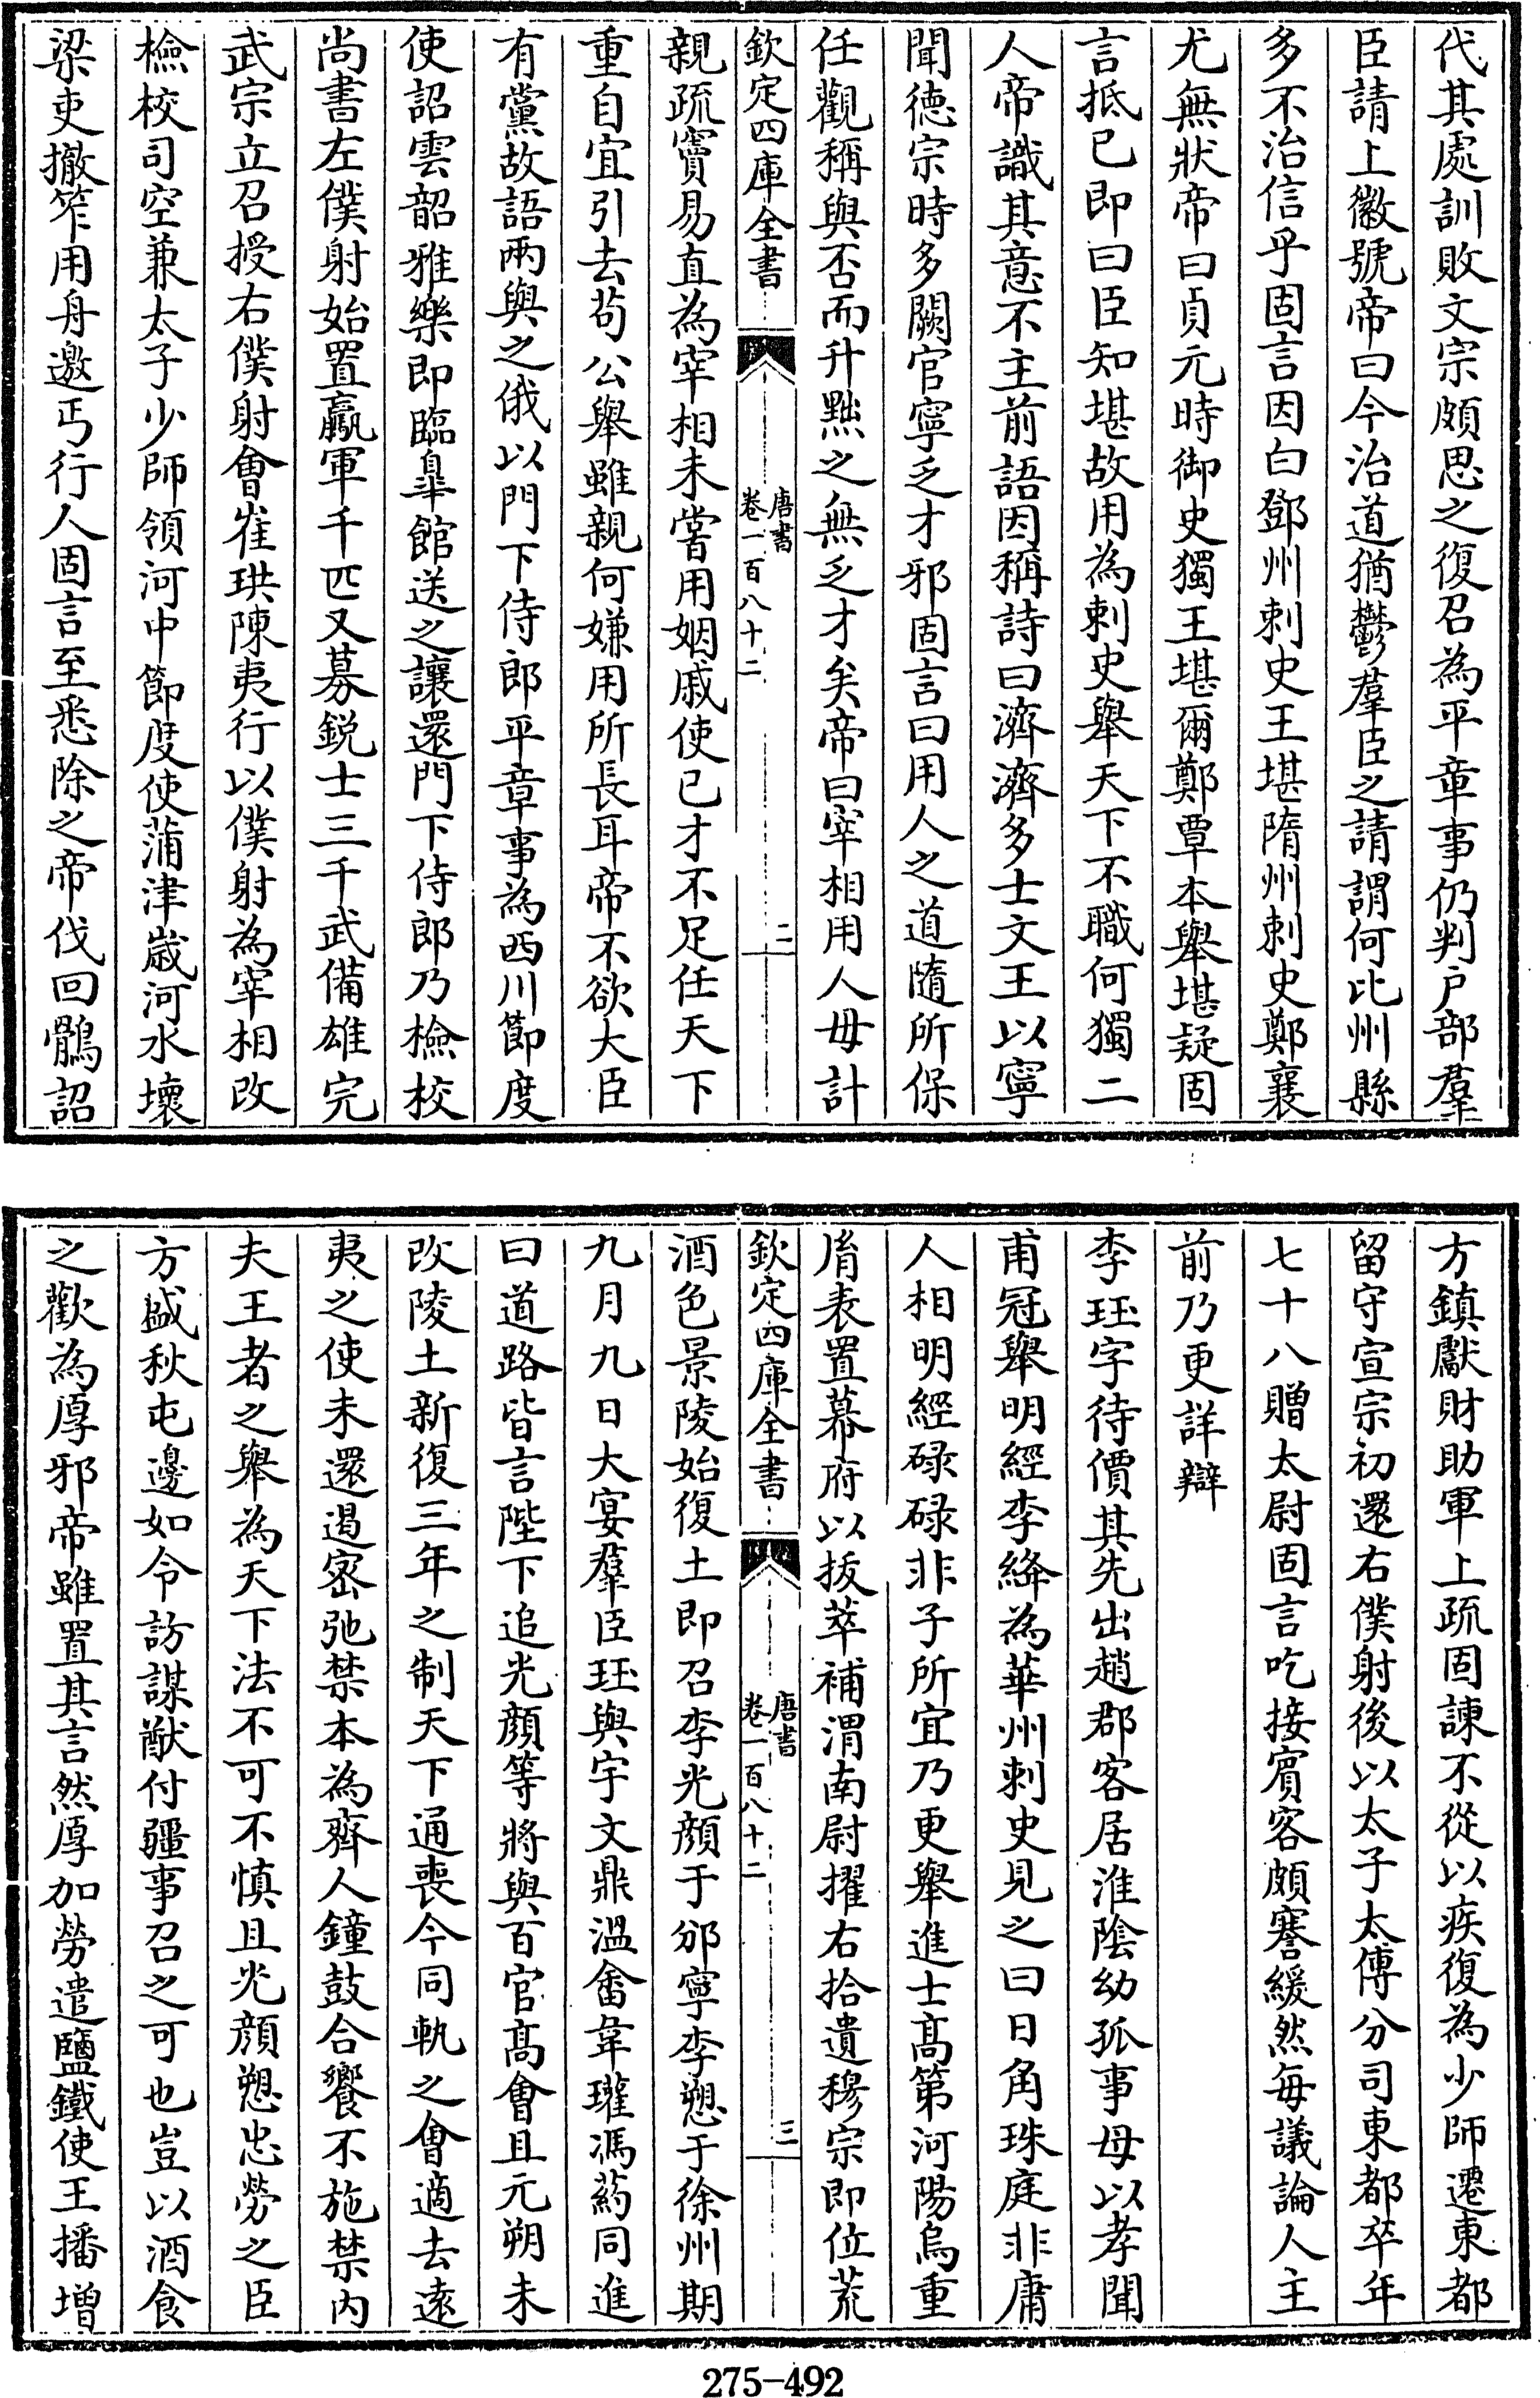 代其處訓敗文宗頗思之復召為平章事仍判戶部羣
臣請上徽號帝曰今治道猶鬱羣臣之請謂何比州縣
多不治信乎固言因白鄧州刺史王堪隋州刺史鄭襄
尤無狀帝曰貞元時御史獨王堪爾鄭覃本舉堪疑固
言抵已即曰臣知堪故用為刺史舉天下不職何獨二
人帝識其意不主前語因稱詩曰濟濟多士文王以寧
聞德宗時多闕官寧乏才邪固言曰用人之道隨所保
任觀稱與否而升黜之無乏才矣帝曰宰相用人毋計
欽定四庫全書
唐書
卷一百八十二
二
親疏竇易直為宰相未嘗用姻戚使已才不足任天下
重自宜引去苟公舉雖親何嫌用所長耳帝不欲大臣
有黨故語兩與之俄以門下侍郎平章事為西川節度
使詔雲韶雅樂即臨臯館送之讓還門下侍郎乃檢校
尚書左僕射始置羸軍千匹又募銳士三千武備雄完
武宗立召授右僕射會崔珙陳夷行以僕射為宰相改
檢校司空兼太子少師領河中節度使蒲津歲河水壞
梁吏撤笮用舟邀丐行人固言至悉除之帝伐回鶻詔
方鎮獻財助軍上疏固諫不從以疾復為少師遷東都
留守宣宗初還右僕射後以太子太傅分司東都卒年
七十八贈太尉固言吃接賓客頗謇緩然每議論人主
前乃更詳辯
李珏字待價其先出趙郡客居淮陰幼孤事母以孝聞
甫冠舉明經李絳為華州刺史見之曰日角珠庭非庸
人相明經碌碌非子所宜乃更舉進士高第河陽烏重
胤表置幕府以拔萃補渭南尉擢右拾遺穆宗即位荒
欽定四庫全書
唐書
卷一百八十二
三
酒色景陵始復土即召李光顏于邠寧李愬于徐州期
九月九日大宴羣臣珏與宇文鼎溫畬韋瓘馮葯同進
曰道路皆言陛下追光顏等將與百官高會且元朔未
改陵土新復三年之制天下通喪今同軌之會適去遠
夷之使未還遏密弛禁本為齊人鐘鼓合饗不施禁內
夫王者之舉為天下法不可不慎且光顏愬忠勞之臣
方盛秋屯邊如令訪謀猷付疆事召之可也豈以酒食
之歡為厚邪帝雖置其言然厚加勞遣鹽鐵使王播增
275-492